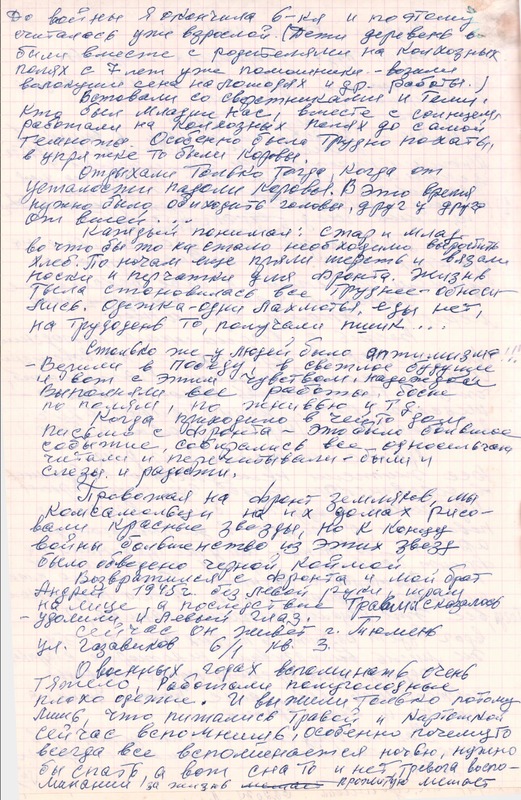 До войны я окончила 6-кл и поэтому
считалась уже взрослой. (Дети деревень
были вместе с родителями на колхозных
полях с 7 лет уже помошники - возили
волокуши сена на лошадях и др. работы.)
Вставали со сверстниками и теми,
кто был младше нас, вместе с солнцем,
работали на колхозных полях до самой
темноты. Особенно было трудно пахать,
в упряжке то были коровы.
Отдыхали только тогда, когда от
усталости падали коровы. В это время
нужно было обиходить головы, друг у друга
от вшей...
Каждый понимал: стар и млад,
во что бы то ни стало необходимо выростить
хлеб. По ночам еще пряли шерсть и вязали
носки и перчатки для фронта. Жизнь
тыла становилась все труднее - обноси-
лись. Одежка - одни лахмоты, еды нет,
на трудодень то, получали пшик...
Столько же у людей было оптимизма!!!
- Верили в победу, в светлое будущее
и вот с этим чувством, надеждой
выполняли все работы, босые
по полям, по жнивью и т.д.
Когда приходило в чей то дом
письмо с фронта - это было большое
событие, собирались все односельчане
читали и перечитывали - были и
слезы и радости.
Провожая на фронт земляков, мы
комсомольцы на их домах рисо-
вали красные звезды, но к концу
войны большинство из этих звезд
было обведено черной каймой
Возвратился с фронта и мой брат
Андрей 1945 г. без левой руки шрам
на лице а последствие травмы сказалось
- удалили и левый глаз.
Сейчас он живет г. Тюмень
ул. Газовиков 6/1 кв. 3.
О военных годах вспоминать очень
тяжело, работали полуголодные
плохо одетые. И выжили только потому
лишь, что питались травой и картошкой
сейчас вспомнишь, особенно почему то
всегда все вспоминается ночью, нужно
бы спать а вот сна то и нет, тревога воспо-
минаний, за жизнь прожитую мешает